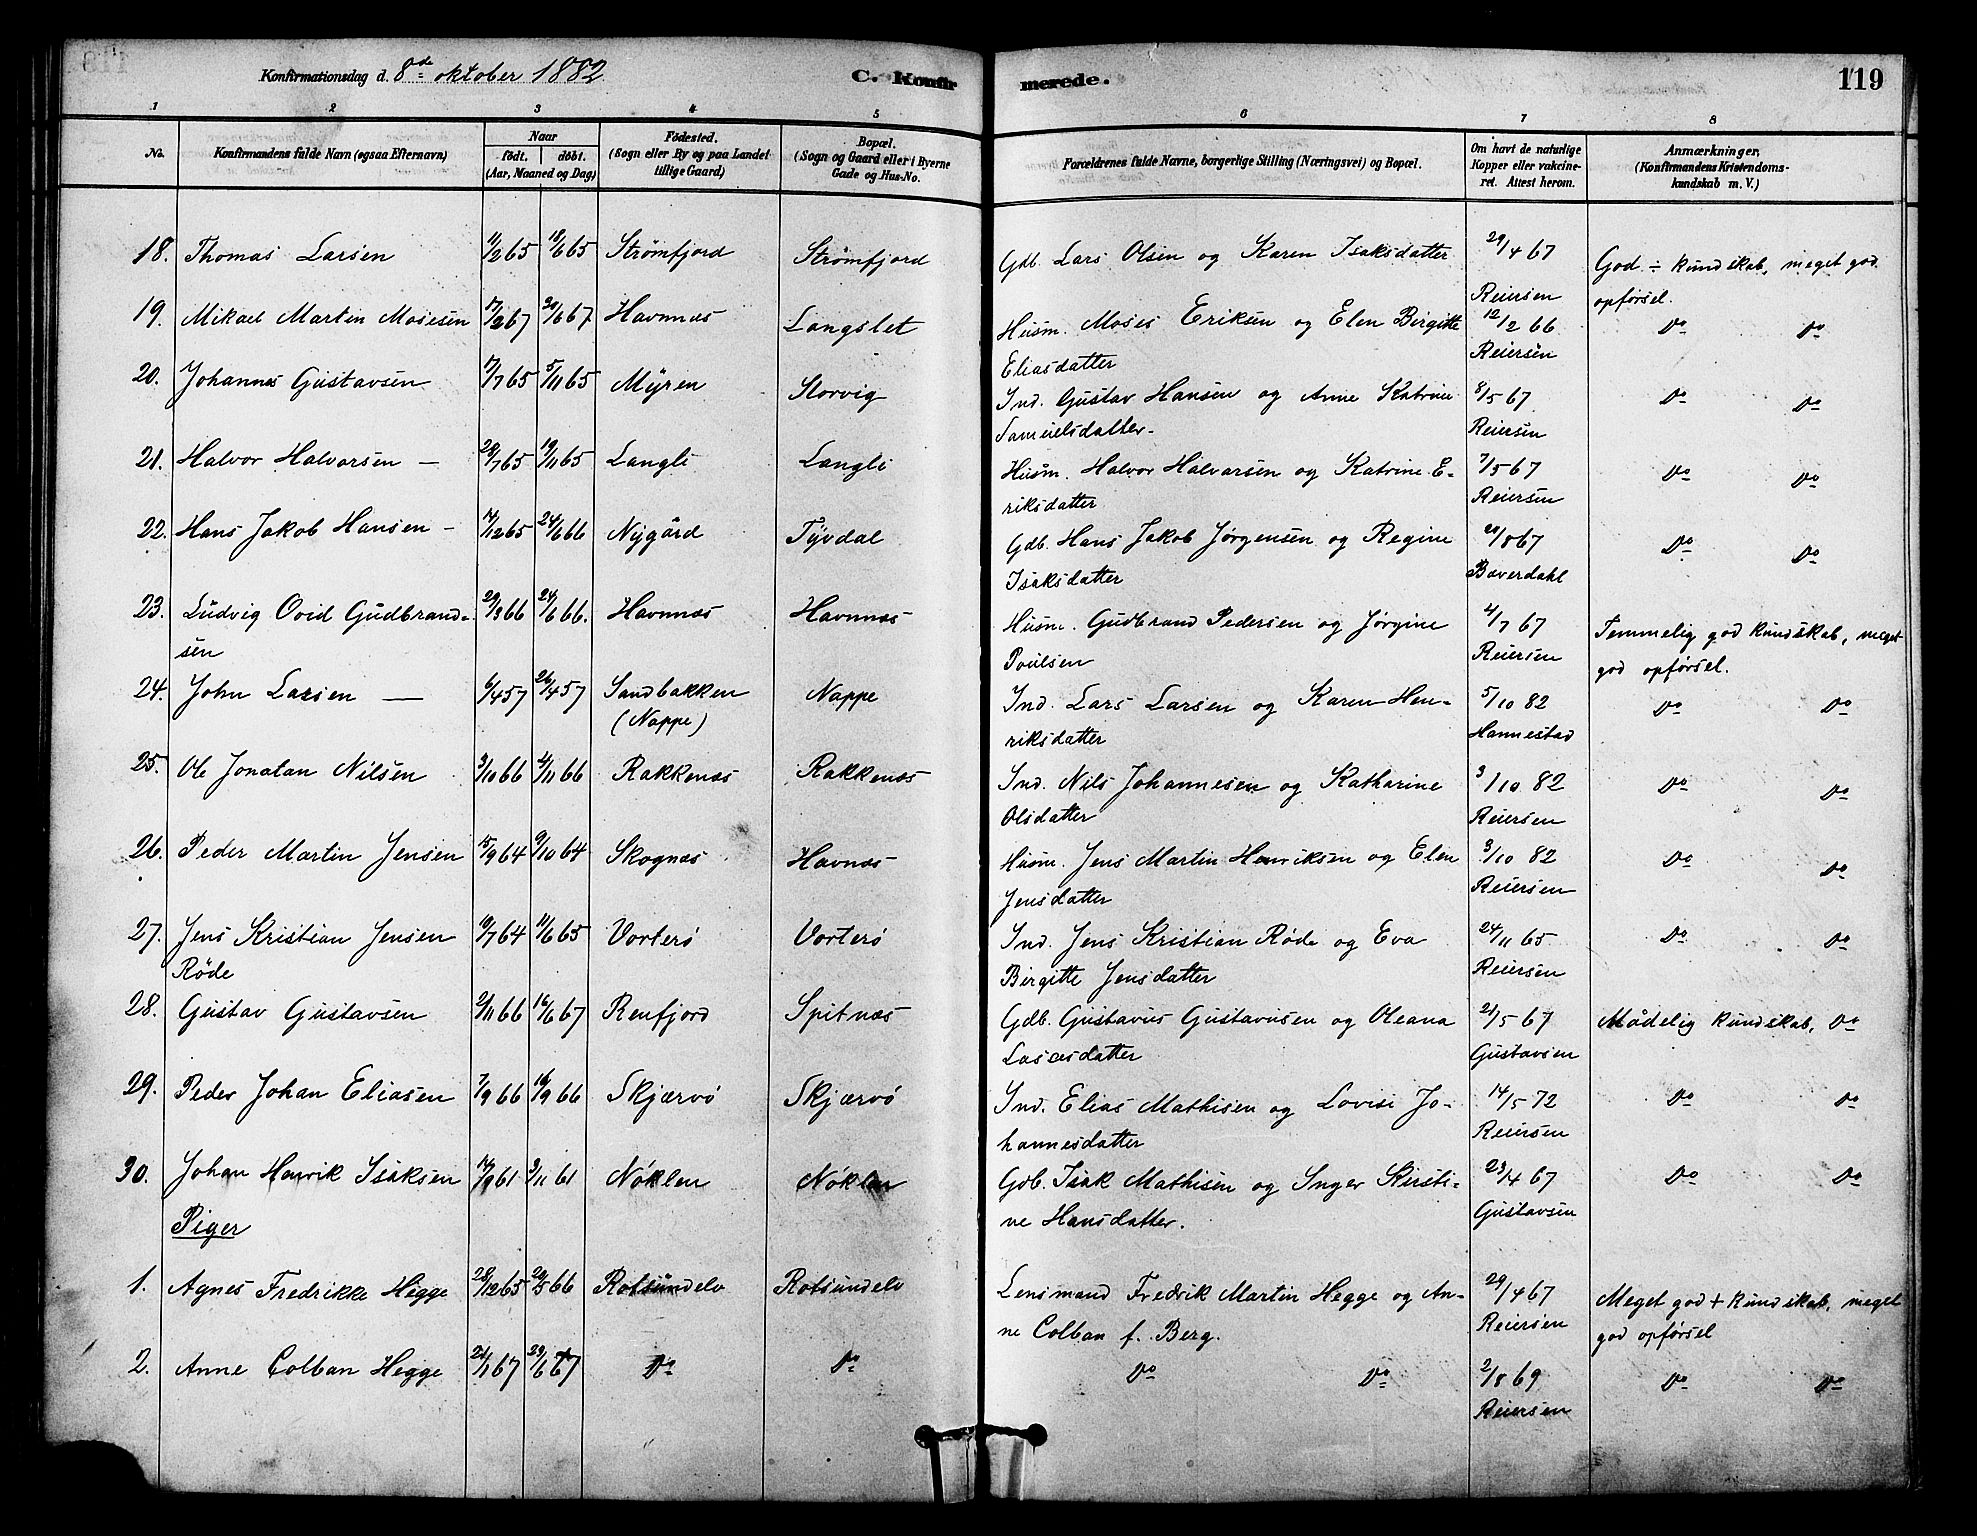 Konfirmationsdag d. 8de oktober 1882 C. Konfirmerede. 119
1 2 3 4 5 6 7 8
No. Konfirmandens fulde Navn (ogsaa Efternavn) Naar født. døbt. (Aar, Maaned og Dag) Fødested. (Sogn eller By og paa Landet tillige Gaard) Bopæl. (Sogn og Gaard eller i Byerne Gade og Hus-No. Forældrenes fulde Navne, borgerlige Stilling (Næringsvei) og Bopæl. Om havt de naturlige Kopper eller vakcineret. Attest herom. Anmærkninger, (Konfirmandens Kristendomskundskab m. V.)
18. Thomas Larsen 11/2 65 18/6 65 Strømfjord Strømfjord Gdb. Lars Olsen og Karen Isaksdatter 29/4 67 God ÷ kundskab, meget god
Reiersen opførsel.
19. Mikael Martin Mosesen 17/2 67 30/6 67 Havnnæs Langslet Husm. Moses Eriksen og Elen Birgitte 12/2 66 Do Do
Eliasdatter Reiersen
20. Johannes Gustavsen 17/7 65 5/11 65 Myren Storvig Ind. Gustav Hansen og Anne Katrine 8/5 67 Do Do
Samuelsdatter. Reiersen
21. Halvor Halvorsen — 28/7 65 19/11 65 Langli Langli Husm. Halvor Halvorsen og Katrine E- 7/5 67 Do Do
riksdatter Reiersen
22. Hans Jakob Hansen - 14/12 65 24/6 66 Nygård Tyvdal Gdb. Hans Jakob Jørgensen og Regine 20/8 67 Do Do
Isaksdatter Baverdahl
23. Ludvig Ovid Gudbrand- 29/3 66 24/6 66. Havnnæs Havnnæs Husm. Gudbrand Pedersen og Jørgine 4/7 67 Temmelig god kundskab, meget
sen Poulsen Reiersen god opførsel.
24. John Larsen — 6/4 57 26/4 57 Sandbakken Nappe Ind. Lars Larsen og Karen Hen- 5/10 82 Do Do
(Nappe) riksdatter Hannestad
25. Ole Jonatan Nilsen 3/10 66 4/11 66 Rakkenæs Rakkenæs Ind. Nils Johannesen og Katharine 3/10 82 Do Do
Olsdatter Reiersen
26. Peder Martin Jensen 15/9 64 9/10 64 Skognæs Havnæs Husm. Jens Martin Henriksen og Elen 3/10 82 Do Do
Jensdatter Reiersen
27. Jens Kristian Jensen 19/7 64 11/6 65 Vorterø Vorterø Ind. Jens Kristian Røde og Eva 24/11 65 Do Do
Røde Birgitte Jensdatter Reiersen
28. Gustav Gustavsen 2/11 66 16/6 67 Renfjord Spitnæs Gdb. Gustavus Gustavusen og Oleana 21/5 67 Mådelig kundskab, Do
Lasesdatter Gustavsen
29. Peder Johan Eliasen 7/9 66 16/9 66 Skjærvø Skjærvø Ind. Elias Mathisen og Lovise Jo- 14/5 72 Do Do
hannesdatter Reiersen
30. Johan Henrik Isaksen 14/9 61 3/11 61 Nøklen Nøklen Gdb. Isak Mathisen og Inger Kirsti- 23/4 67 Do Do
Piger ne Hansdatter. Gustavsen
1. Agnes Fredrikke Hegge 28/12 65 20/5 66 Rotsundelv Rotsundelv Lensmand Fredrik Martin Hegge og An- 29/4 67 Meget god + kundskab, meget
ne Colban f. Berg. Reiersen god opførsel
2. Anne Colban Hegge 21/1 67 23/6 67 Do Do Do Do 2/8 69 Do Do
Reiersen